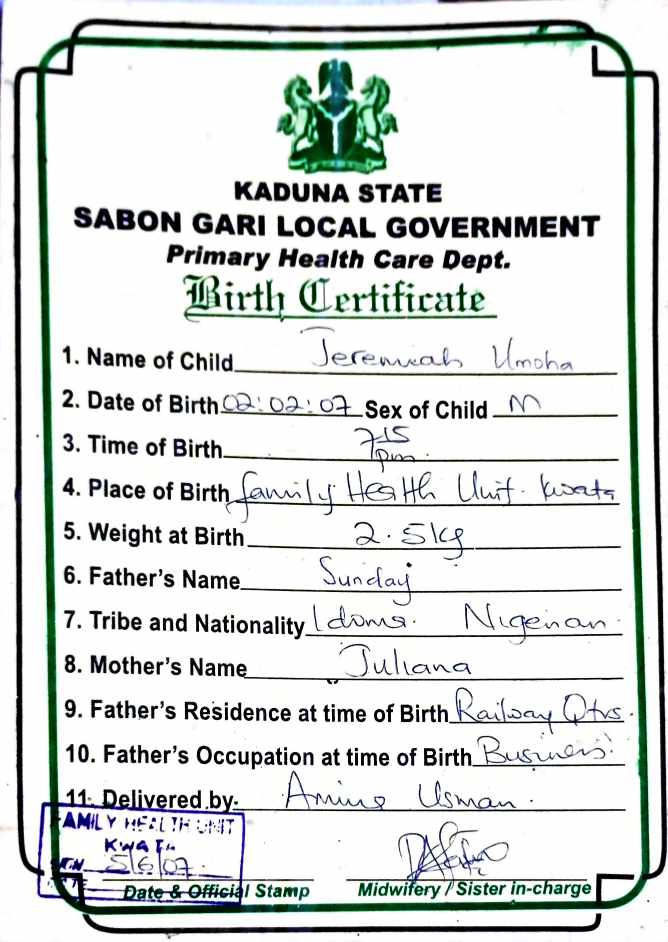 KADUNA STATE
SABON GARI LOCAL GOVERNMENT
Primary Health Care Dept.
Birth Certificate
1. Name of Child Jeremiah Umoha
2. Date of Birth 02:02:07 Sex of Child M
3. Time of Birth 7 15 pm
4. Place of Birth family Health Unit. Kwata
5. Weight at Birth 2.5kg
6. Father's Name Sunday
7. Tribe and Nationality Idoma. Nigerian.
8. Mother's Name Juliana
9. Father's Residence at time of Birth Railway Qtrs.
10. Father's Occupation at time of Birth Business
11. Delivered by: Amina Usman.
FAMILY HEALTH UNIT
KWATA
5/6/07
Date & Official Stamp Midwifery / Sister in-charge